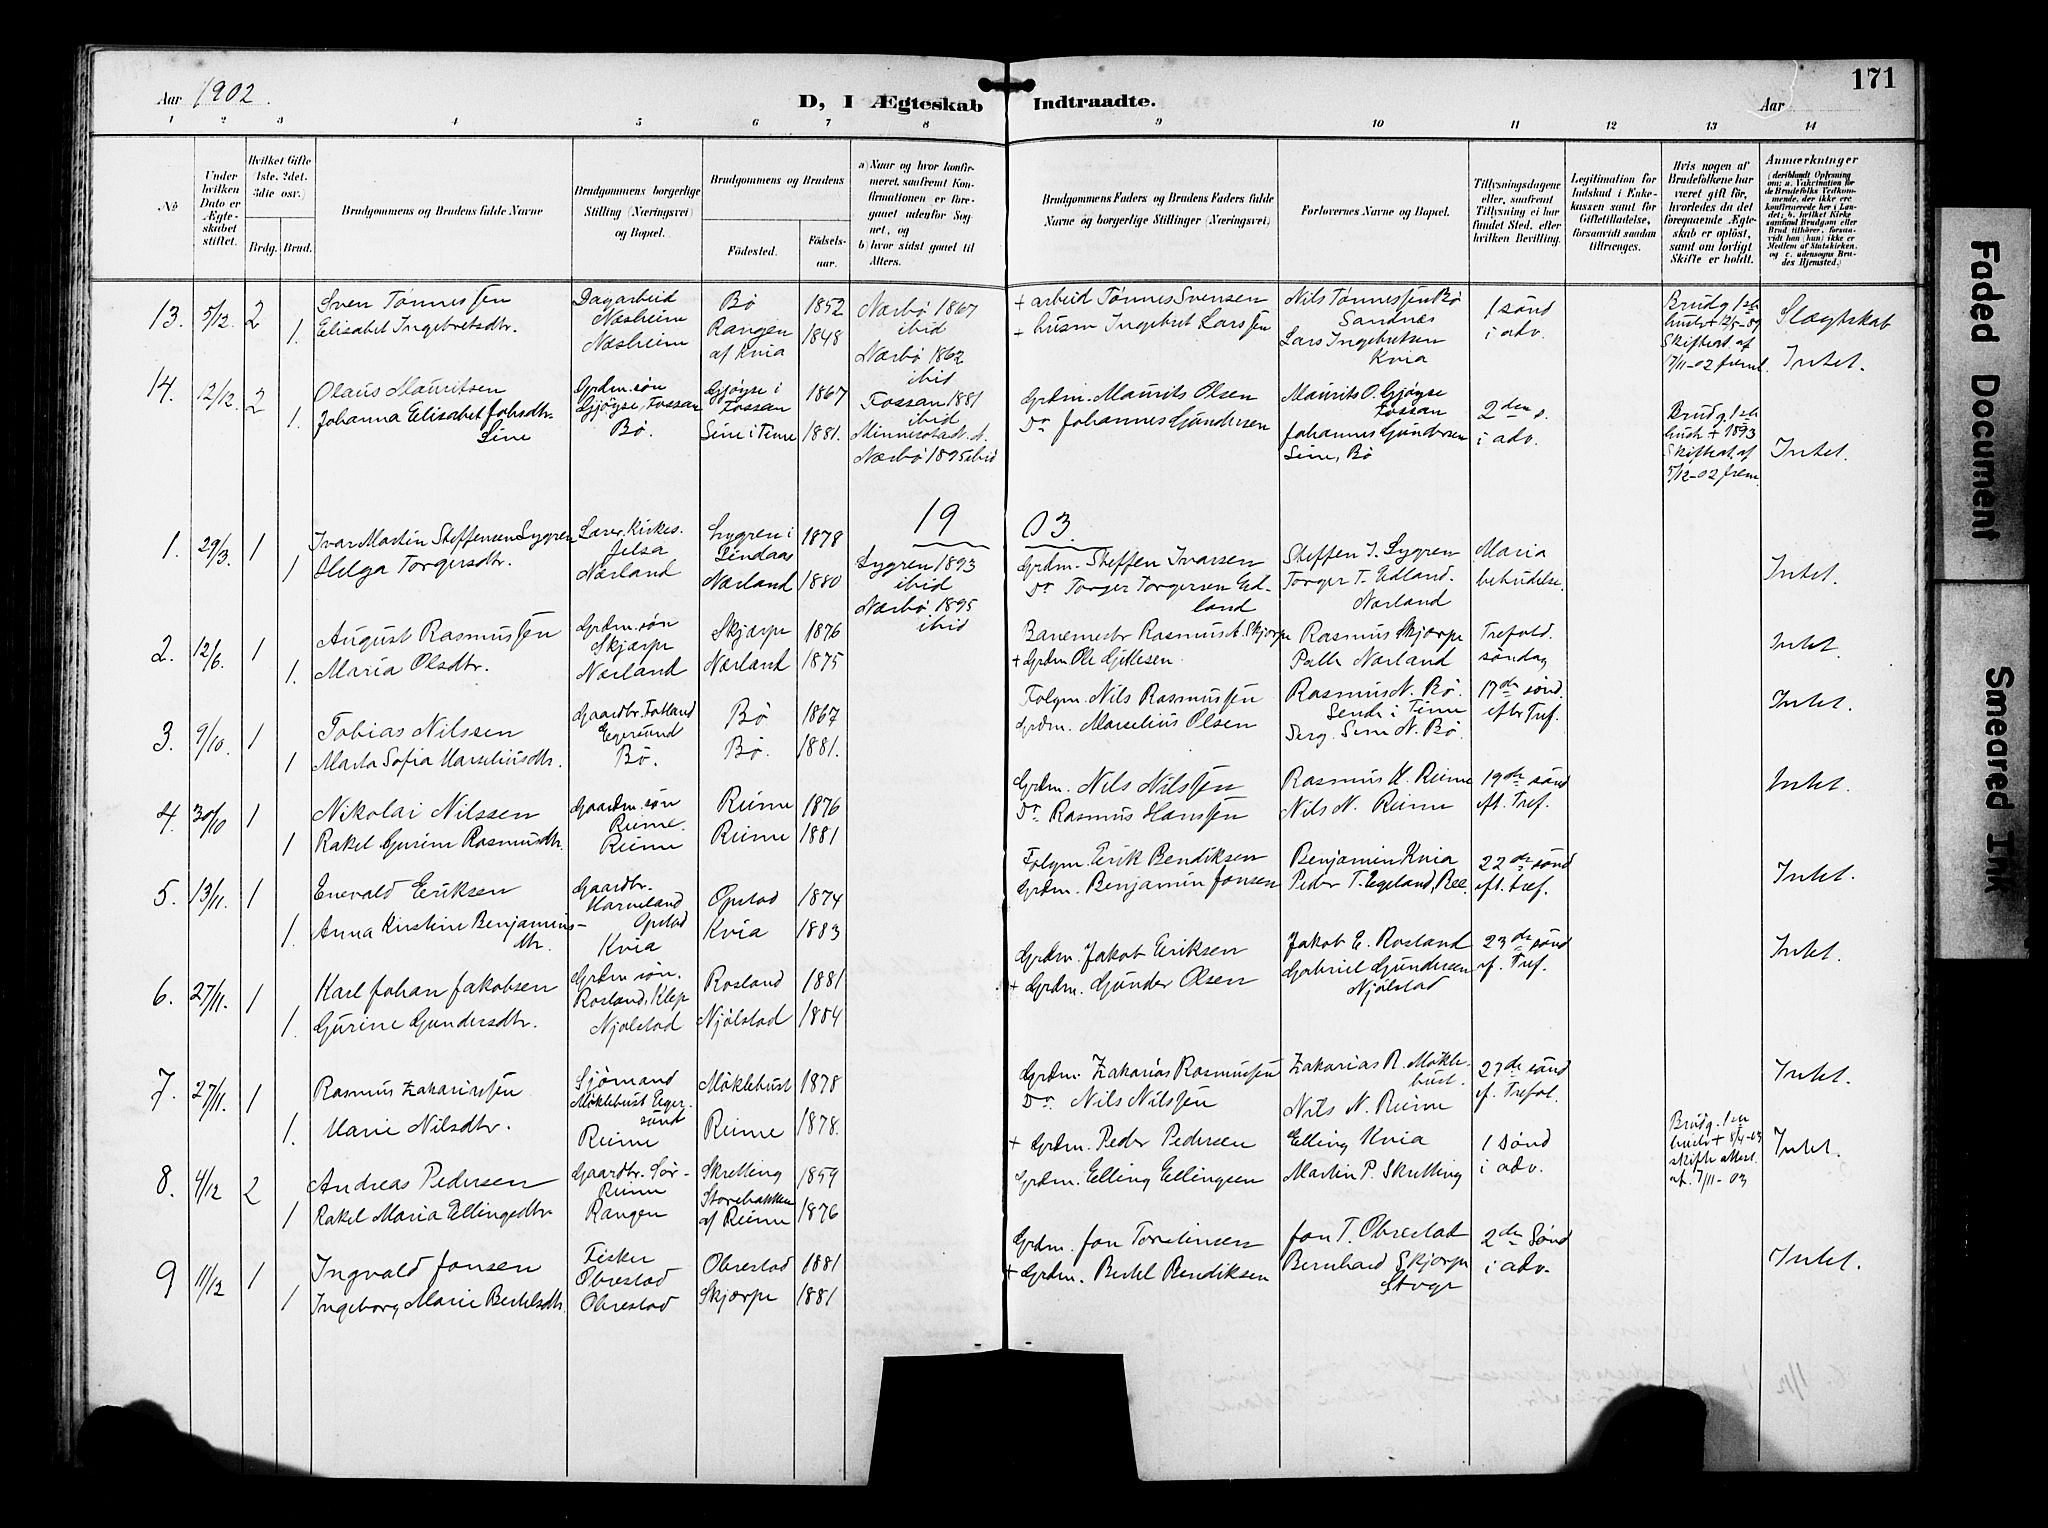 171
Aar 1902.
D, I Ægteskab Indtraadte.
Aar
1 2 3 4 5 6 7 8 9 10 11 12 13 14
No
Under hvilken Dato er Ægteskabet stiftet.
Hvilket Gifte (1ste, 2det, 3die osv.)
Brdg. Brud.
Brudgommens og Brudens fulde Navne
Brudgommens borgerlige Stilling (Næringsvei) og Bopæl.
Brudgommens og Brudens
Födested.
Födselsaar.
a) Naar og hvor konfirmeret, saafremt Konfirmationen er foregaaet udenfor Sognet, og
b) hvor sidst gaaet til Alters.
Brudgommens Faders og Brudens Faders fulde Navne og borgerlige Stillinger (Næringsvei)
Forlovernes Navne og Bopæl.
Tillysningsdagene eller, saafremt Tillysning ei har fundet Sted, efter hvilken Bevilling.
Legitimation for Indskud i Enkekassen samt for Giftetilladelse, forsaavidt saadan tiltrænges.
Hvis nogen af Brudefolkene har været gift før, hvorledes da det foregaaende Ægteskab er opløst, samt om lovligt Skifte er holdt.
Anmærkninger
13. 5/12. 2 Sven Tønnessen Dagarbeid Næsheim Bø 1852 Nærbø 1867 ibid + arbeid Tønnes Svensen Nils Tønnessen Bø Sandnæs 1 sønd i adv. Slægtskab
1. Elisabet Ingebretsdtr. Næsheim Rangen af Kvia 1848 Nærbø 1862 ibid + husm Ingebret Larssen Lars Ingebretsen Kvia Intet.
14. 12/12. 2 Olaus Mauritsen Grdm. søn Gjøyse, Fossan Gjøyse i Fossan 1867 Fossan 1881 ibid Grdm. Maurits Olsen Maurits O. Gjøyse Fossan 2den s. i adv. Intet.
1. Johanna Elisabet Johsdtr. Line Bø. Line i Time 1881. Nærbø 1895 ibid Do Johannes Gundersen Johannes Gundersen Line, Bø
1903.
1. 29/3. 1 Ivar Martin Steffensen Lygren Lærer, Kirkes. Jelsa Lygren i Lindaas 1878 Lygren 1893 ibid Grdm. Steffen Ivarsen Steffen I. Lygren Maria bebudelse. Intet.
1 Helga Torgersdtr. Nærland Nærland 1880 Nærbø 1895 ibid Do Torger Torgersen Edland Torger T. Edland. Nærland
2. 12/6. 1 August Rasmussen Grdm. søn Skjærpe Skjærpe 1876 Banemestr Rasmus A. Skjærpe Rasmus Skjærpe Trefold. søndag Intet.
1. Maria Olsdtr. Nærland Nærland 1875 + Grdm. Ole Gjitlesen Palle Nærland
3. 9/10. 1 Tobias Nilssen Gaardbr. Fotland Egersund Bø 1867 Folgm. Nils Rasmussen Rasmus N. Bø. Sende i Time 17de sønd. eftr Tref. Intet.
1 Marta Sofia Marseliusdtr. Bø. Bø. 1881. Grdm. Marselius Olsen Serg. Sem N. Bø.
4. 30/10 1 Nikolai Nilssen Gaardm. søn Reime. Reime 1876 Grdm. Nils Nilssen Rasmus H. Reime 19de sønd eft. Tref. Intet.
1 Rakel Gurine Rasmusdtr. Reime Reime 1881 Do. Rasmus Hanssen Nils N. Reime
5. 13/11. 1 Enevald Eriksen Gaardbr. Harveland Opstad Opstad 1874 Folgm. Erik Bendiksen Benjamin Kvia 22de sønd eft. tref. Intet.
1. Anna Kirstine Benjaminsdtr. Kvia Kvia 1883 Grdm. Benjamin Jonsen Peder T. Egeland, Ree.
6. 27/11. 1 Karl Johan Jakobsen Grdm. søn. Rosland, Klep Rosland 1881 Grdm. Jakob Eriksen Jakob E. Rosland 23de sønd ef. Tref. Intet.
1. Gurine Gundersdtr. Njølstad Njølstad 1884 + Grdm. Gunder Olsen Gabriel Gundersen Njølstad
7. 27/11. 1 Rasmus Zakariassen Sjømand Møklebust Egersund Møklebust 1878 Grdm. Zakarias Rasmussen Zakarias R. Møklebust. 27de sønd ef. Trefol. Intet.
1. Marie Nilsdtr. Reime Reime 1878. Do. Nils Nilssen Nils N. Reime
8. 4/12 2 Andreas Pedersen Gaardbr. Sør-Reime Skretting 1859 + Grdm. Peder Pedersen Elling Kvia 1 sønd i adv. Brudg. 1ste hustr + 8/4-03 skifte attest af. 7/11-03 Intet.
1 Rakel Maria Ellingsdtr. Rangen Storebakken af Reime 1876 Grdm. Elling Ellingsen Martin P. Skretting
9 11/12 1 Ingvald Jonsen Fisker Obrestad Obrestad 1881 Grdm. Jon Torstensen Jon T. Obrestad 2den Sønd i adv. Intet.
1 Ingeborg Marie Bertelsdtr. Obrestad Skjærpe 1881 + Grdm. Bertel Bendiksen Bernhard Skjærpe
Faded Document
Smeared Ink